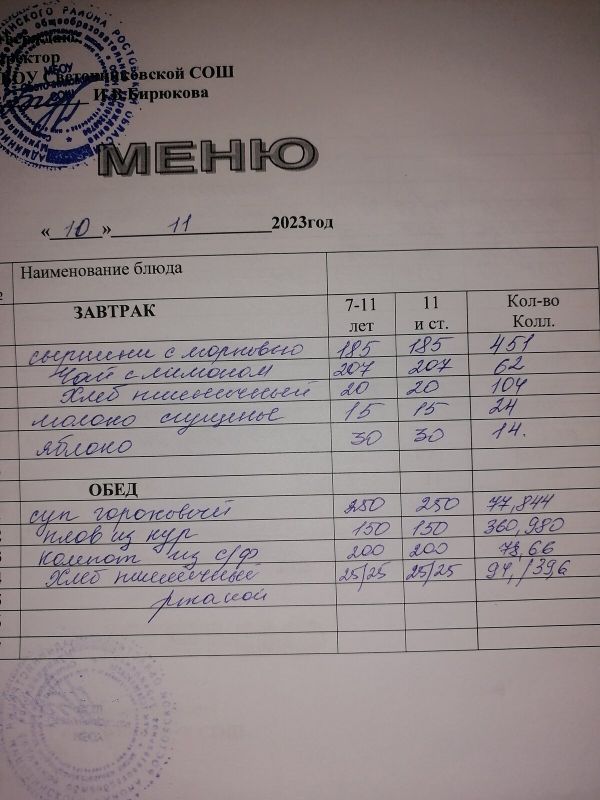 ректор
ОУ Светочниковской СОШ
И.В.Бирюкова
МЕНЮ
«10» 11 2023год
Наименование блюда
ЗАВТРАК 7-11 лет 11 и ст. Кол-во Колл.
сырники с морковью 185 185 451
Чай с лимоном 207 207 62
Хлеб пшеничный 20 20 104
молоко сгущеное 15 15 24
яблоко 30 30 14.
ОБЕД
суп гороховый 250 250 77,844
плов из кур 150 150 360,980
компот из с/ф 200 200
Хлеб пшеничный 25/25 25/25
ржаной